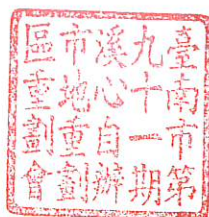 臺南市第
九十一期
溪心自辦
市地重劃
區重劃會